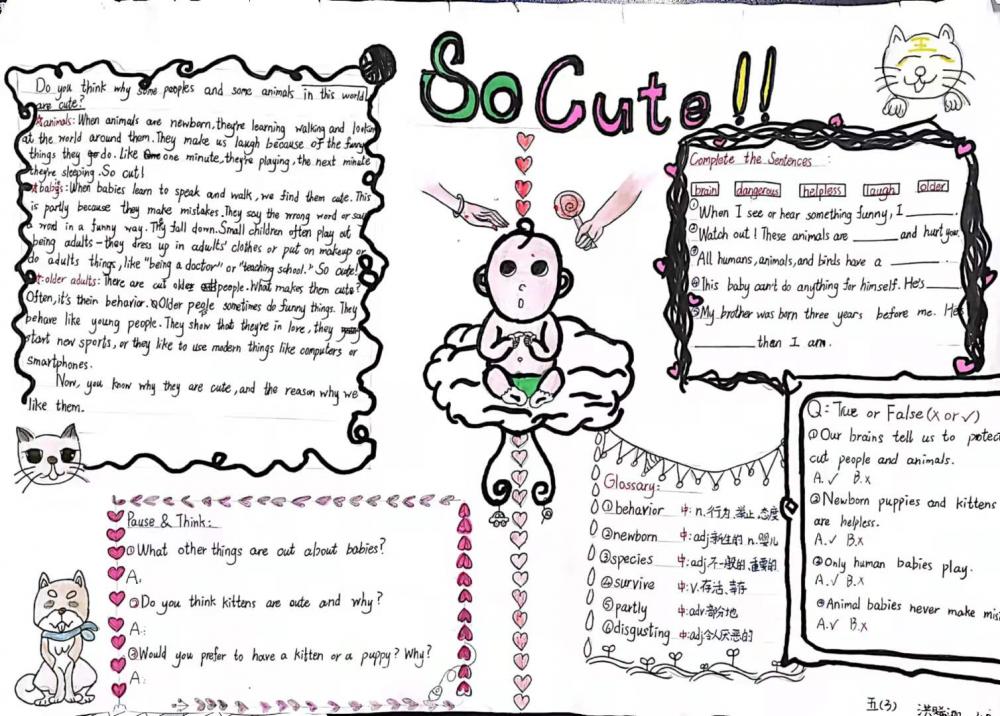 So Cute!!
Do you think why some peoples and some animals in this world
are cute?
animals: When animals are newborn, they're learning walking and lookin
at the world around them. They make us laugh because of the funny
things they do. Like one minute, they're playing, the next minute
they're sleeping. So cut!
babys: When babies learn to speak and walk, we find them cute. This
is partly because they make mistakes. They say the wrong word or say
a word in a funny way. They fall down. Small children often play at
being adults—they dress up in adults' clothes or put on makeup or
do adults things, like "being a doctor" or "teaching school." So cute!
older adults: There are cut older people. What makes them cute?
Often, it's thein behavior. Older people sometimes do funny things. They
behave like young people. They show that they're in love, they
start new sports, or they like to use modern things like computers or
smartphones.
Now, you know why they are cute, and the reason why we
like them.
Complete the Sentences :
brain dangerous helpless laugh older
①When I see or hear something funny, I ______.
②Watch out! These animals are ______ and hurt you.
③All humans, animals, and birds have a ______.
④This baby can't do anything for himself. He's ______
⑤My brother was born three years before me. He
______ then I am.
Q: True or False (x or √)
①Our brains tell us to protec
cut people and animals.
A.√ B.x
②Newborn puppies and kittens
are helpless.
A.√ B.x
③Only human babies play.
A.√ B.x
④Animal babies never make mis
A.√ B.x
Glossary:
①behavior 中: n.行为、举止、态度
②newborn 中: adj新生的 n.婴儿
③species
④survive 中: v.存活、幸存
⑤partly 中: adv部分地
⑥disgusting 中: adj令人厌恶的
Pause & Think:
①What other things are cut about babies?
A:
②Do you think kittens are cute and why?
A:
③Would you prefer to have a kitten or a puppy? Why?
A:
王
五(3)